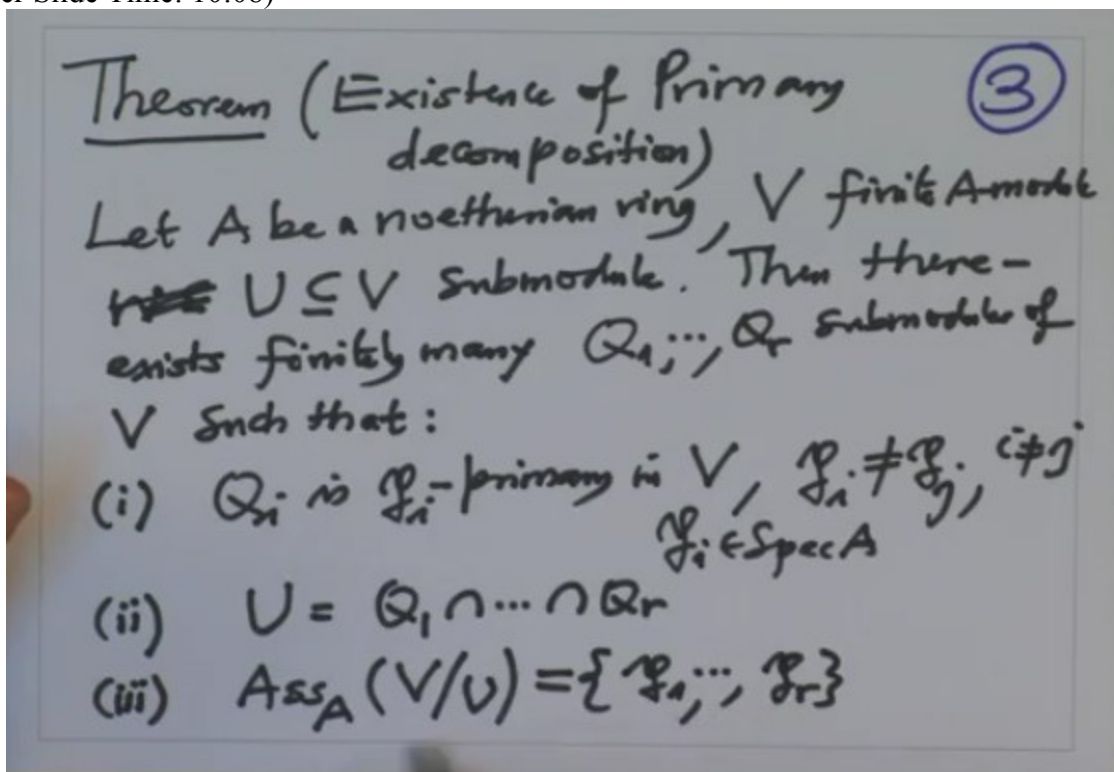 Theorem (Existence of Primary ③
decomposition)
Let A be a noetherian ring, V finite A-module
U ⊆ V submodule. Then there-
exists finitely many Q₁,…,Qᵣ submodules of
V such that:
(i) Qᵢ is 𝔭ᵢ-primary in V, 𝔭ᵢ≠𝔭ⱼ, i≠j
𝔭ᵢ∈Spec A
(ii) U = Q₁∩…∩Qᵣ
(iii) Ass_A (V/U) = {𝔭₁,…,𝔭ᵣ}